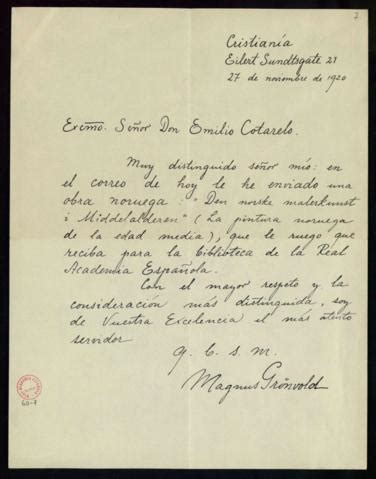 2
Cristianía
Eilert Sundtsgate 21
27 de noviembre de 1920
Excmo. Señor Don Emilio Cotarelo.
Muy distinguido señor mío: en
el correo de hoy le he enviado una
obra noruega: "Den norske malerkunst
i Middelalderen" (La pintura noruega
de la edad media), que le ruego que
reciba para la biblioteca de la Real
Academia Española.
Con el mayor respeto y la
consideración más distinguida, soy
de Vuestra Excelencia el más atento
servidor
q. b. s. m.
Magnus Grönvold
60-7